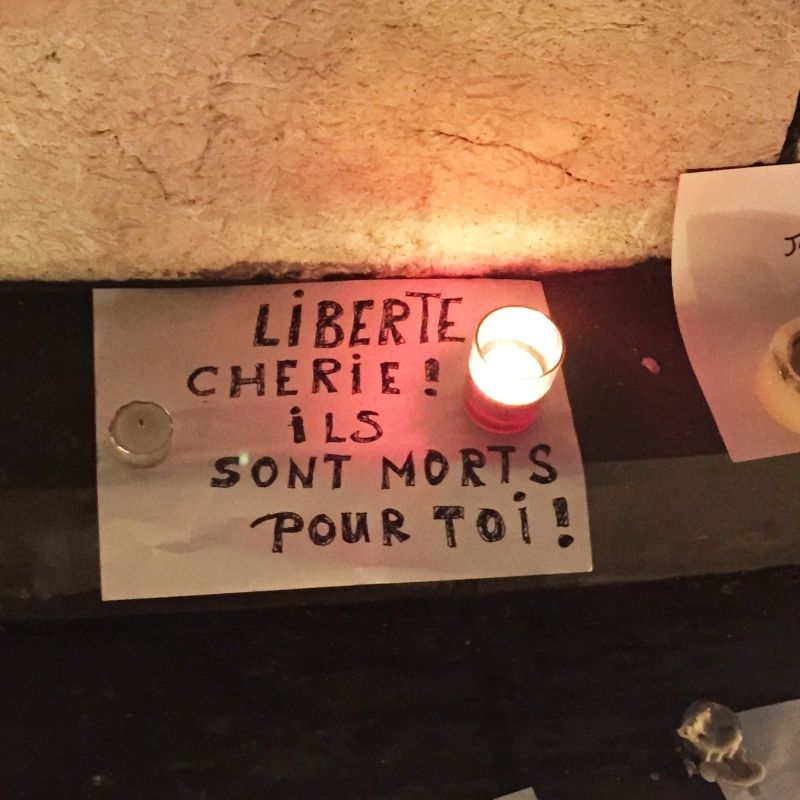 LiBERTE
CHERiE!
iLS
SONT MORTS
POUR TOi!